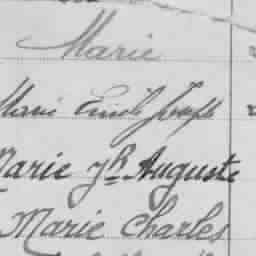 Marie
Marie Emile Joseph
Marie Jh Auguste
Marie Charles